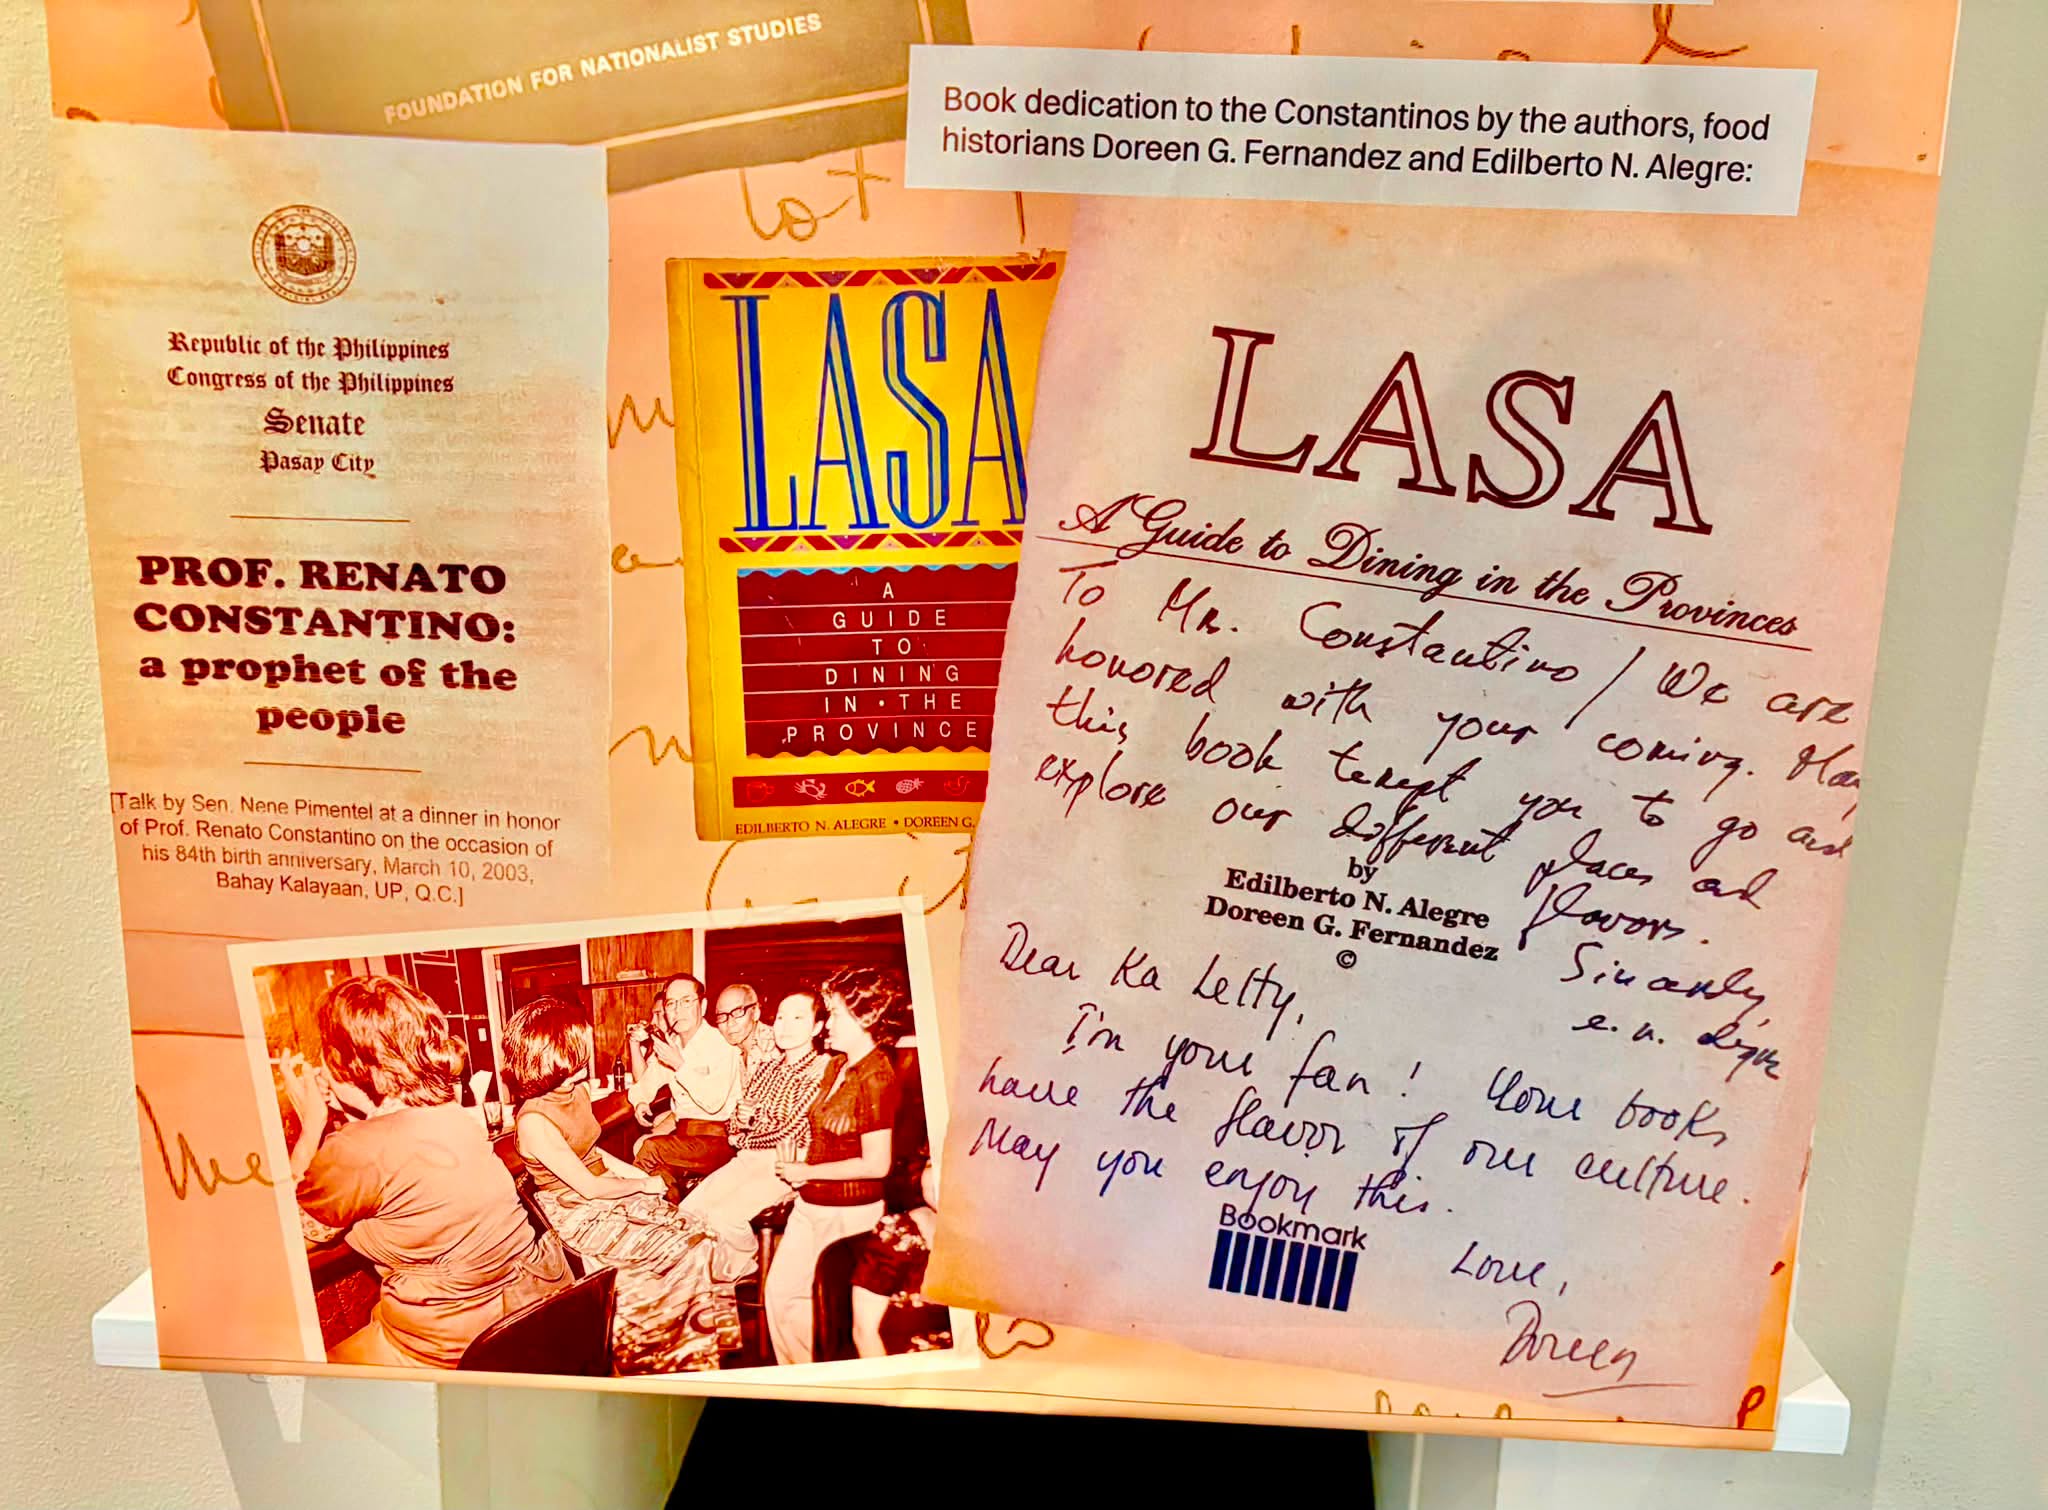 FOUNDATION FOR NATIONALIST STUDIES
Book dedication to the Constantinos by the authors, food
historians Doreen G. Fernandez and Edilberto N. Alegre:
Republic of the Philippines
Congress of the Philippines
Senate
Pasay City
PROF. RENATO
CONSTANTINO:
a prophet of the
people
[Talk by Sen. Nene Pimentel at a dinner in honor
of Prof. Renato Constantino on the occasion of
his 84th birth anniversary, March 10, 2003,
Bahay Kalayaan, UP, Q.C.]
lot
LASA
A
GUIDE
TO
DINING
IN • THE
PROVINCE
EDILBERTO N. ALEGRE • DOREEN G.
LASA
A Guide to Dining in the Provinces
To Mr. Constantino / We are
honored with your coming. May
this book tempt you to go and
explore our different places and
flavors.
Sincerely,
e. n. alegre
by
Edilberto N. Alegre
Doreen G. Fernandez
©
Dear Ka Letty,
I'm your fan! Your books
have the flavor of our culture.
May you enjoy this.
Love,
Doreen
Bookmark